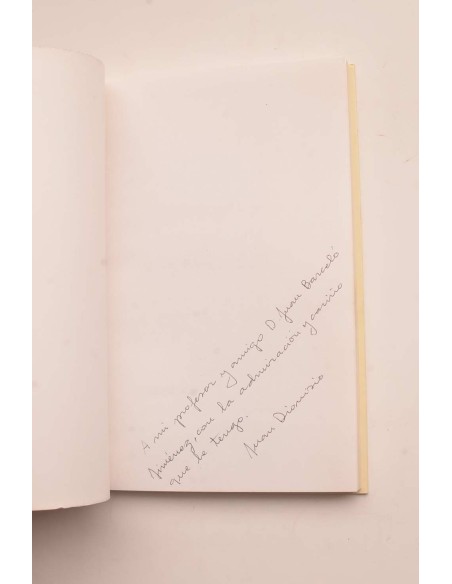 A mi profesor y amigo D. Juan Barceló
Jiménez, con la admiración y cariño
que le tengo.
Juan Dionisio